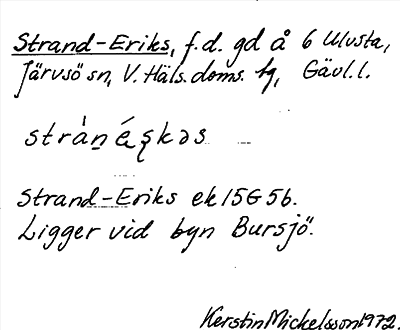 Strand-Eriks, f.d. gd å 6 Ulvsta,
Järvsö sn, V. Häls. doms. tg, Gävl. l.
stràn é̜kəs
Strand-Eriks ek 15G 5b.
Ligger vid byn Bursjö.
Kerstin Mickelsson 1972.